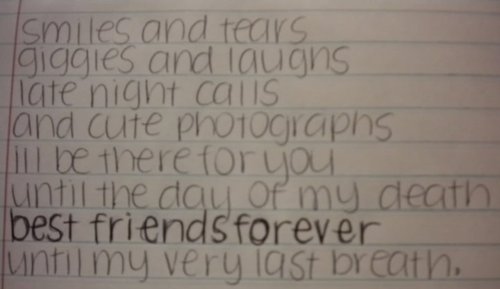 smiles and tears
giggles and laughs
late night calls
and cute photographs
ill be there for you
until the day of my death
best friends forever
until my very last breath.